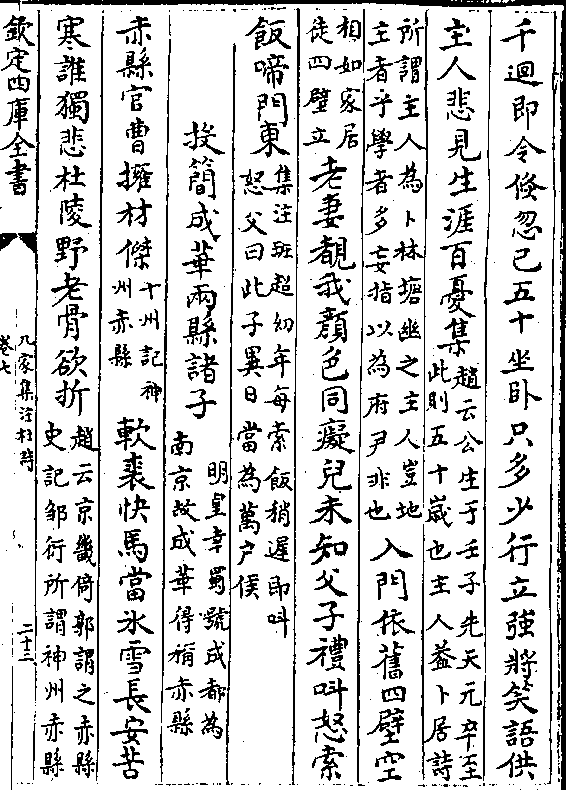 千迴即令倏忽已五十坐卧只多少行立強將笑語供
主人悲見生涯百憂集趙云公生于壬子先天元卒至
此則五十歲也主人葢卜居詩
所謂主人為卜林塘幽之主人豈地
主者乎學者多妄指以為府尹非也入門依舊四壁空
相如家居
徒四壁立老妻覩我顔色同癡兒未知父子禮叫怒索
飯啼門東集注班超幼年每索飯稍遲即叫
怒父曰此子異日當為萬户侯
投簡成華兩縣諸子明皇幸蜀號成都為
南京故成華得稱赤縣
赤縣官曹擁材傑十州記神
州赤縣軟裘快馬當氷雪長安苦
寒誰獨悲杜陵野老骨欲折趙云京畿倚郭謂之赤縣
史記邹衍所謂神州赤縣
欽定四庫全書
九家集注杜詩
卷七
二十三